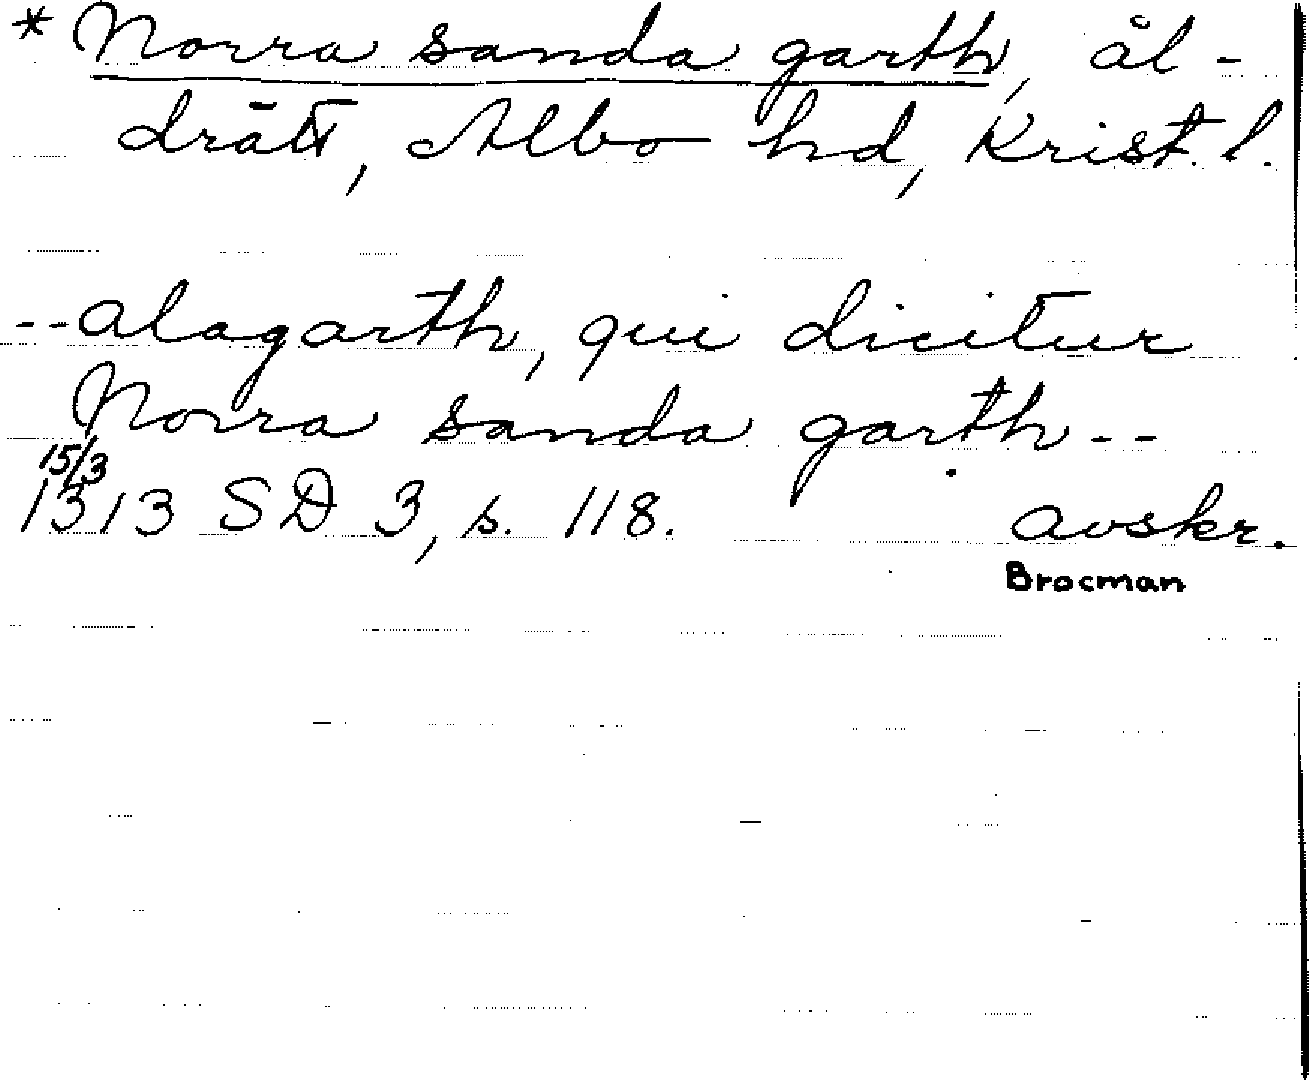 * Norra sanda garth, ål-
drätt, Albo hd, Krist. l.
--alagarth, qui dicitur
Norra sanda garth--
15/3
1313 SD 3, s. 118. avskr.
Brocman